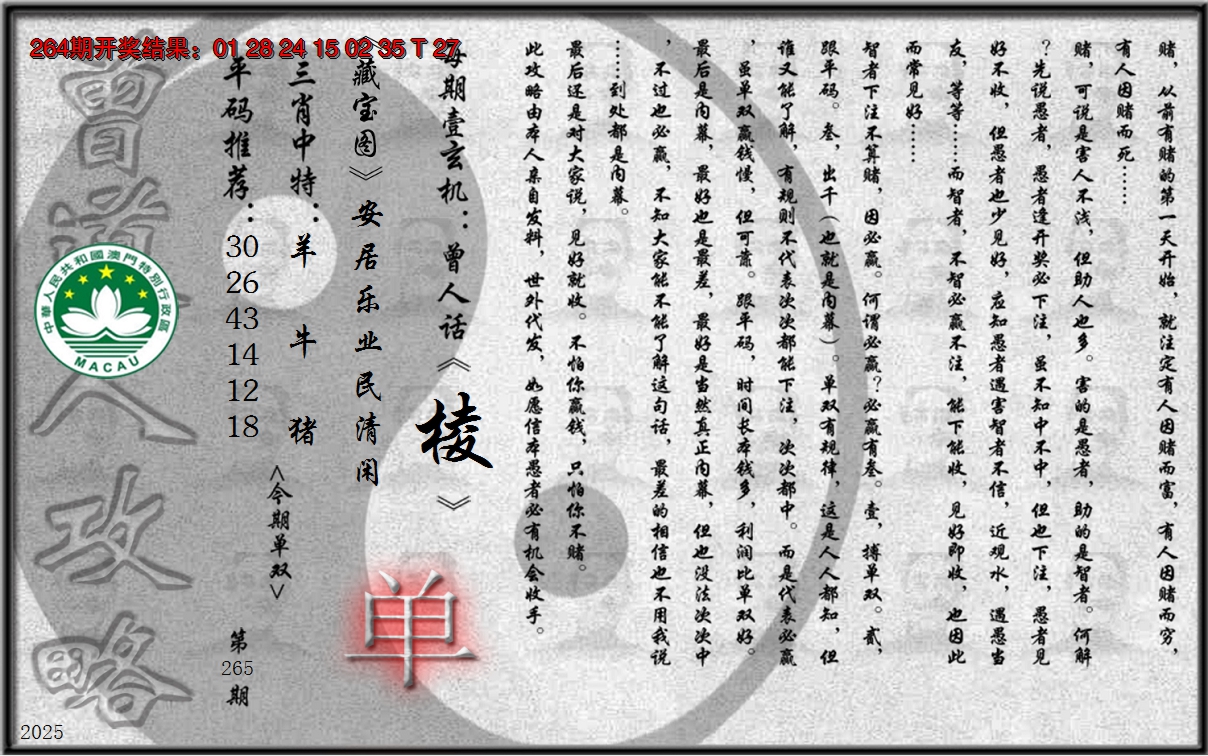 264期开奖结果：01 28 24 15 02 35 T 27
赌，从前有赌的第一天开始，就注定有人因赌而富，有人因赌而穷，
有人因赌而死……
赌，可说是害人不浅，但助人也多。害的是愚者，助的是智者。何解
？先说愚者，愚者逢开奖必下注，虽不知中不中，但也下注，愚者见
好不收，但愚者也少见好，应知愚者遇害智者不信，近观水，遇愚当
友，等等……而智者，不智必赢不注，能下能收，见好即收，也因此
而常见好……
智者下注不算赌，因必赢。何谓必赢？必赢有叁。壹，搏单双。贰，
跟平码。叁，出千（也就是内幕）。单双有规律，这是人人都知，但
谁又能了解，有规则不代表次次都能下注，次次都中。而是代表必赢
，虽单双赢钱慢，但可靠。跟平码，时间长本钱多，利润比单双好。
最后是内幕，最好也是最差，最好是当然真正内幕，但也没法次次中
，不过也必赢，不知大家能不能了解这句话，最差的相信也不用我说
……到处都是内幕。
最后还是对大家说，见好就收。不怕你赢钱，只怕你不赌。
此攻略由本人亲自发料，世外代发，如愿信本愚者必有机会收手。
每期壹玄机：曾人话《棱》
《藏宝图》安居乐业民清闲
单
三肖中特：羊 牛 猪
<今期单双>
平码推荐：30 26 43 14 12 18
第265期
曾道人攻略
中華人民共和國澳門特別行政區
MACAU
2025